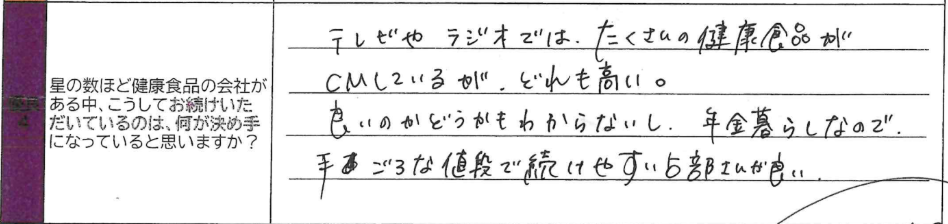 星の数ほど健康食品の会社が
ある中、こうしてお続けいた
だいているのは、何が決め手
になっていると思いますか?
テレビや ラジオでは、たくさんの健康食品が
CMしているが、どれも高い。
良いのかどうかもわからないし、年金暮らしなので、
手ごろな値段で続けやすい
さんが良い。